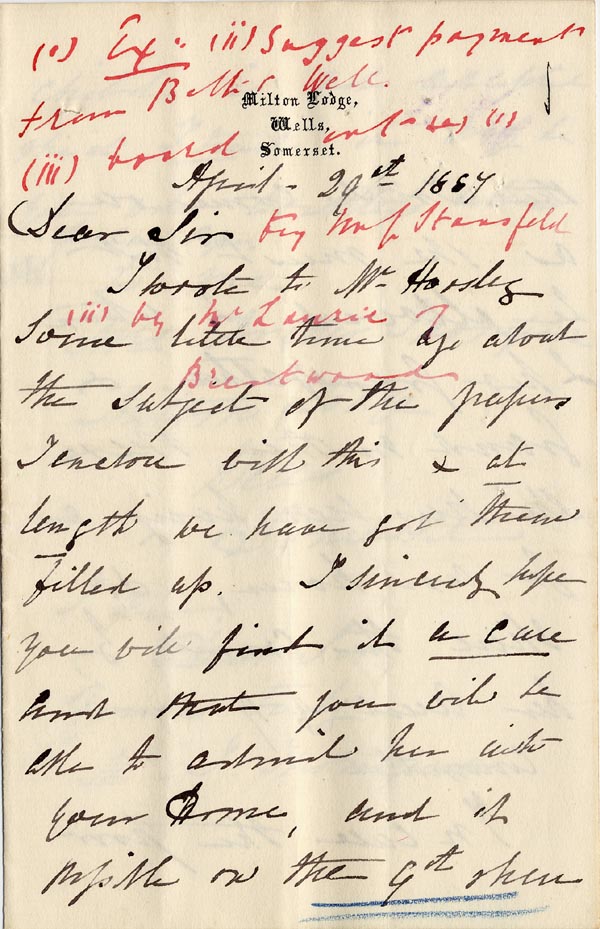 (i) Ex: (ii) Suggest payment
from Bath & Well.
Milton Lodge,
Wells,
Somerset.
(iii) board out - as (i)
April - 29st - 1887
Dear Sir
by Mrs Stansfeld
I wrote to Mr Horsley
(iii) by Mr Laurie ?
some little time ago about
Brentwood
the subject of the papers
I enclose with this & at
length we have got them
filled up. I sincerely hope
you will find it a case
and that you will be
able to admit her into
your Home, and if
possible on the 9th when